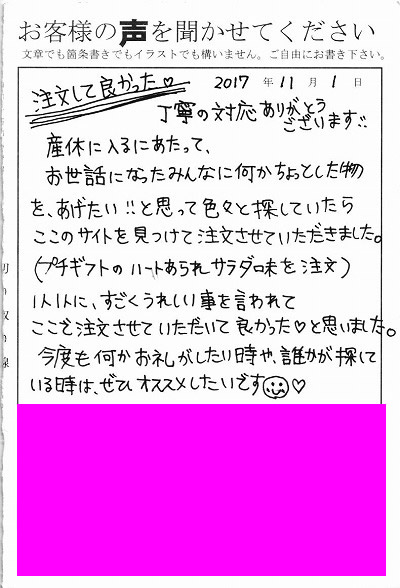 お客様の声を聞かせてください
文章でも箇条書きでもイラストでも構いません。ご自由にお書き下さい。
2017年11月1日
注文して良かった♡
丁寧の対応ありがとうございます!!
産休に入るにあたって、
お世話になったみんなに何かちょっとした物
を、あげたい!!と思って色々と探していたら
ここのサイトを見つけて注文させていただきました。
(プチギフトのハートあられサラダ味を注文)
1人1人に、すごくうれしい事を言われて
ここで注文させていただいて良かった♡と思いました。
今度も何かお礼がしたい時や、誰かが探して
いる時は、ぜひオススメしたいです☺♡
切り取り線